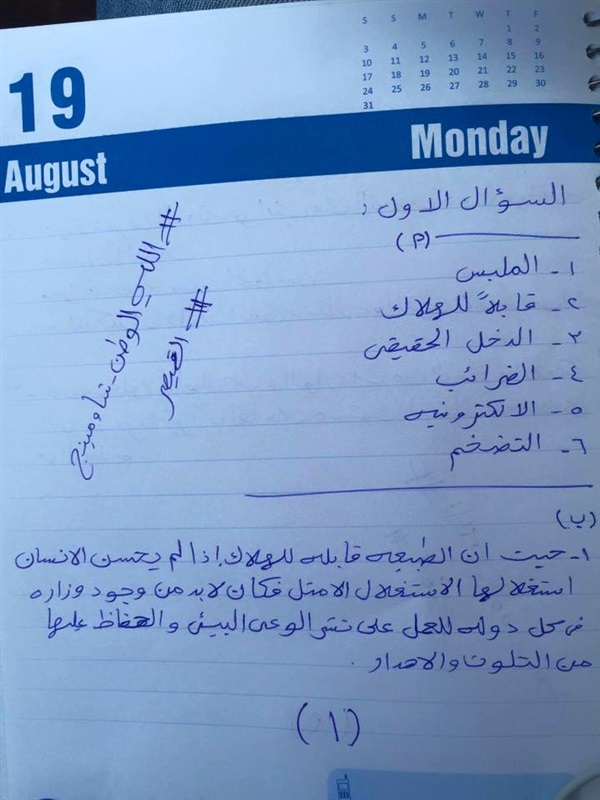 S S M T W T F
1 2
3 4 5 6 7 8 9
10 11 12 13 14 15 16
17 18 19 20 21 22 23
24 25 26 27 28 29 30
31
19
August
Monday
السؤال الاول :
(P)
١- الملبس
٢- قابلاً للهلاك
٣- الدخل الحقيقى
٤- الضرائب
٥- الالكترونيه
٦- التضخم
# الليبي الوطن - شاومينج
# القيصر
(ب)
١- حيث ان الطبيعه قابله للهلاك إذا لم يحسن الانسان
استغلالها الاستغلال الامثل فكان لابد من وجود وزاره
فى كل دوله للعمل على نشر الوعى البيئى والحفاظ عليها
من التلوث والاهدار .
(١)